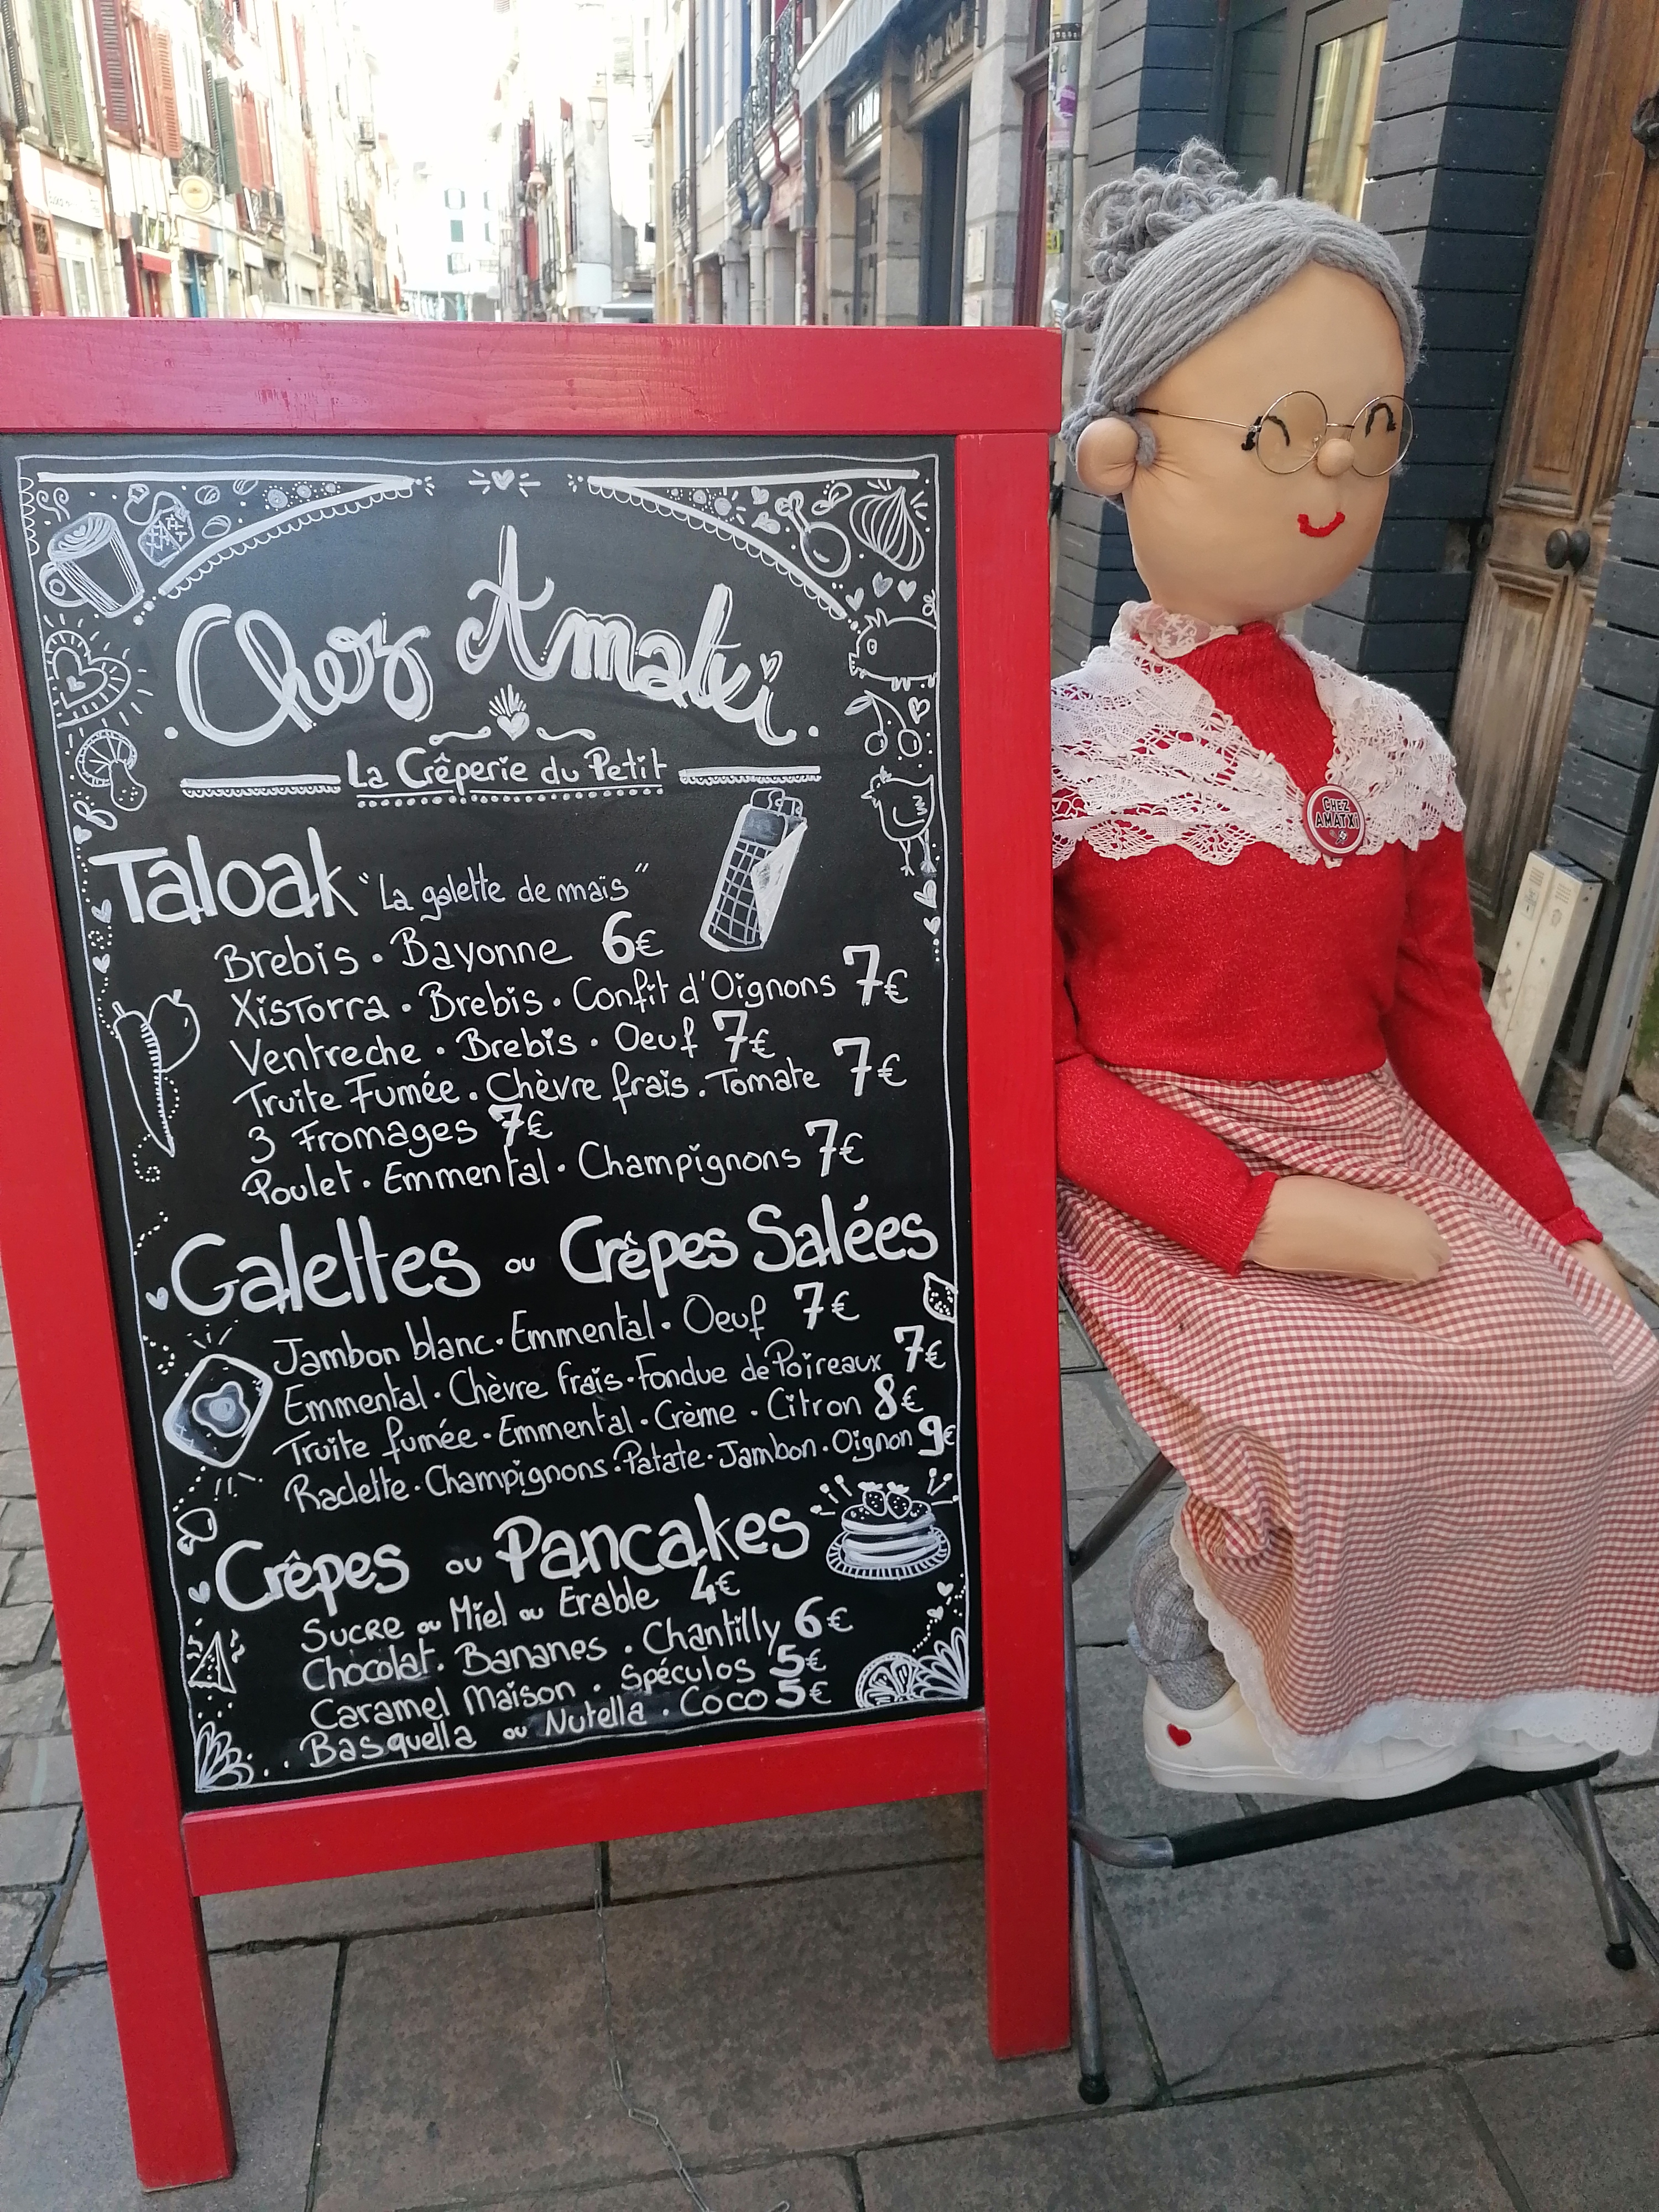 Chez Amatxi
La Crêperie du Petit
Taloak "La galette de maïs"
Brebis . Bayonne 6€
Xistorra . Brebis . Confit d'Oignons 7€
Ventreche . Brebis . Oeuf 7€
Truite Fumée . Chèvre frais . Tomate 7€
3 Fromages 7€
Poulet . Emmental . Champignons 7€
Galettes ou Crêpes Salées
Jambon blanc . Emmental . Oeuf 7€
Emmental . Chèvre frais . Fondue de Poireaux 7€
Truite fumée . Emmental . Crème . Citron 8€
Raclette . Champignons . Patate . Jambon . Oignon 9€
Crêpes ou Pancakes
Sucre ou Miel ou Erable 4€
Chocolat . Bananes . Chantilly 6€
Caramel Maison . Spéculos 5€
Basquella ou Nutella . Coco 5€
CHEZ
AMATXI